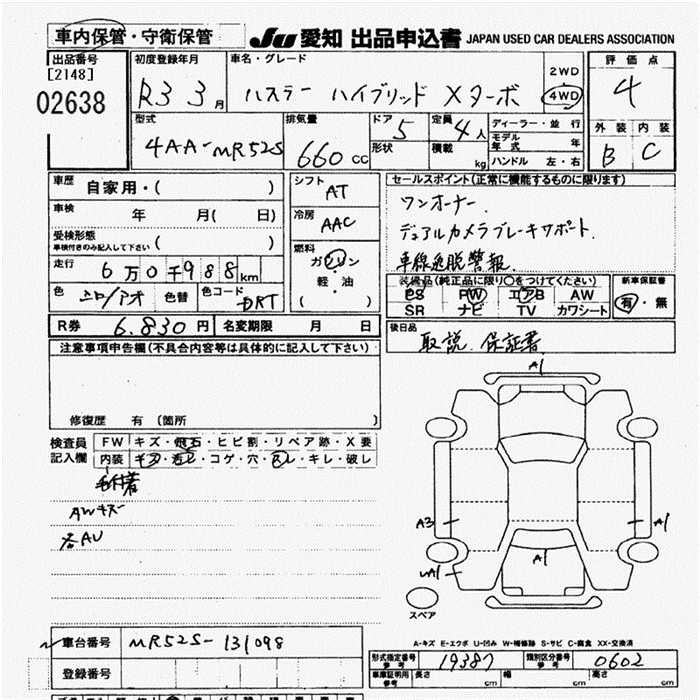 車内保管・守衛保管
JU 愛知 出品申込書 JAPAN USED CAR DEALERS ASSOCIATION
出品番号
[2148]
02638
初度登録年月
R3 3月
車名・グレード
ハスラー ハイブリッド Xターボ
2WD
4WD
評価点
4
外装 内装
B C
型式
4AA-MR52S
排気量
660 CC
ドア 5
形状
定員 4人
積載 kg
ディーラー・並行
モデル年式 年
ハンドル 左・右
車歴 自家用・( )
車検 年 月( 日)
受検形態
車検付きのみ記入して下さい ( )
走行 6万0千988km
色 シロ/アオ 色替 色コード DRT
シフト AT
冷房 AAC
燃料
ガソリン
軽・油
( )
セールスポイント(正常に機能するものに限ります)
ワンオーナー.
デュアルカメラブレーキサポート.
車線逸脱警報.
装備品(純正品に限り○をつけてください)
PS PW エアB AW
SR ナビ TV カワシート
新車保証書
有・無
R券 6.830円 名変期限 月 日
後日品
取説. 保証書
注意事項申告欄(不具合内容等は具体的に記入して下さい)
修復歴 有 (箇所 )
検査員記入欄
FW キズ・飛石・ヒビ割・リペア跡・X要
内装 コゲ・穴・スレ・キレ・破レ
毛付着
AWキズ
各AU
A1
A3
A1
A1
スペア
A-キズ E-エクボ U-凹み W-補修跡 S-サビ C-腐食 XX-交換済
車台番号 MR52S-131098
登録番号
形式指定番号
参考
19387
類別区分番号
参考
0602
車庫証明用
参考
長さ cm 幅 cm 高さ cm